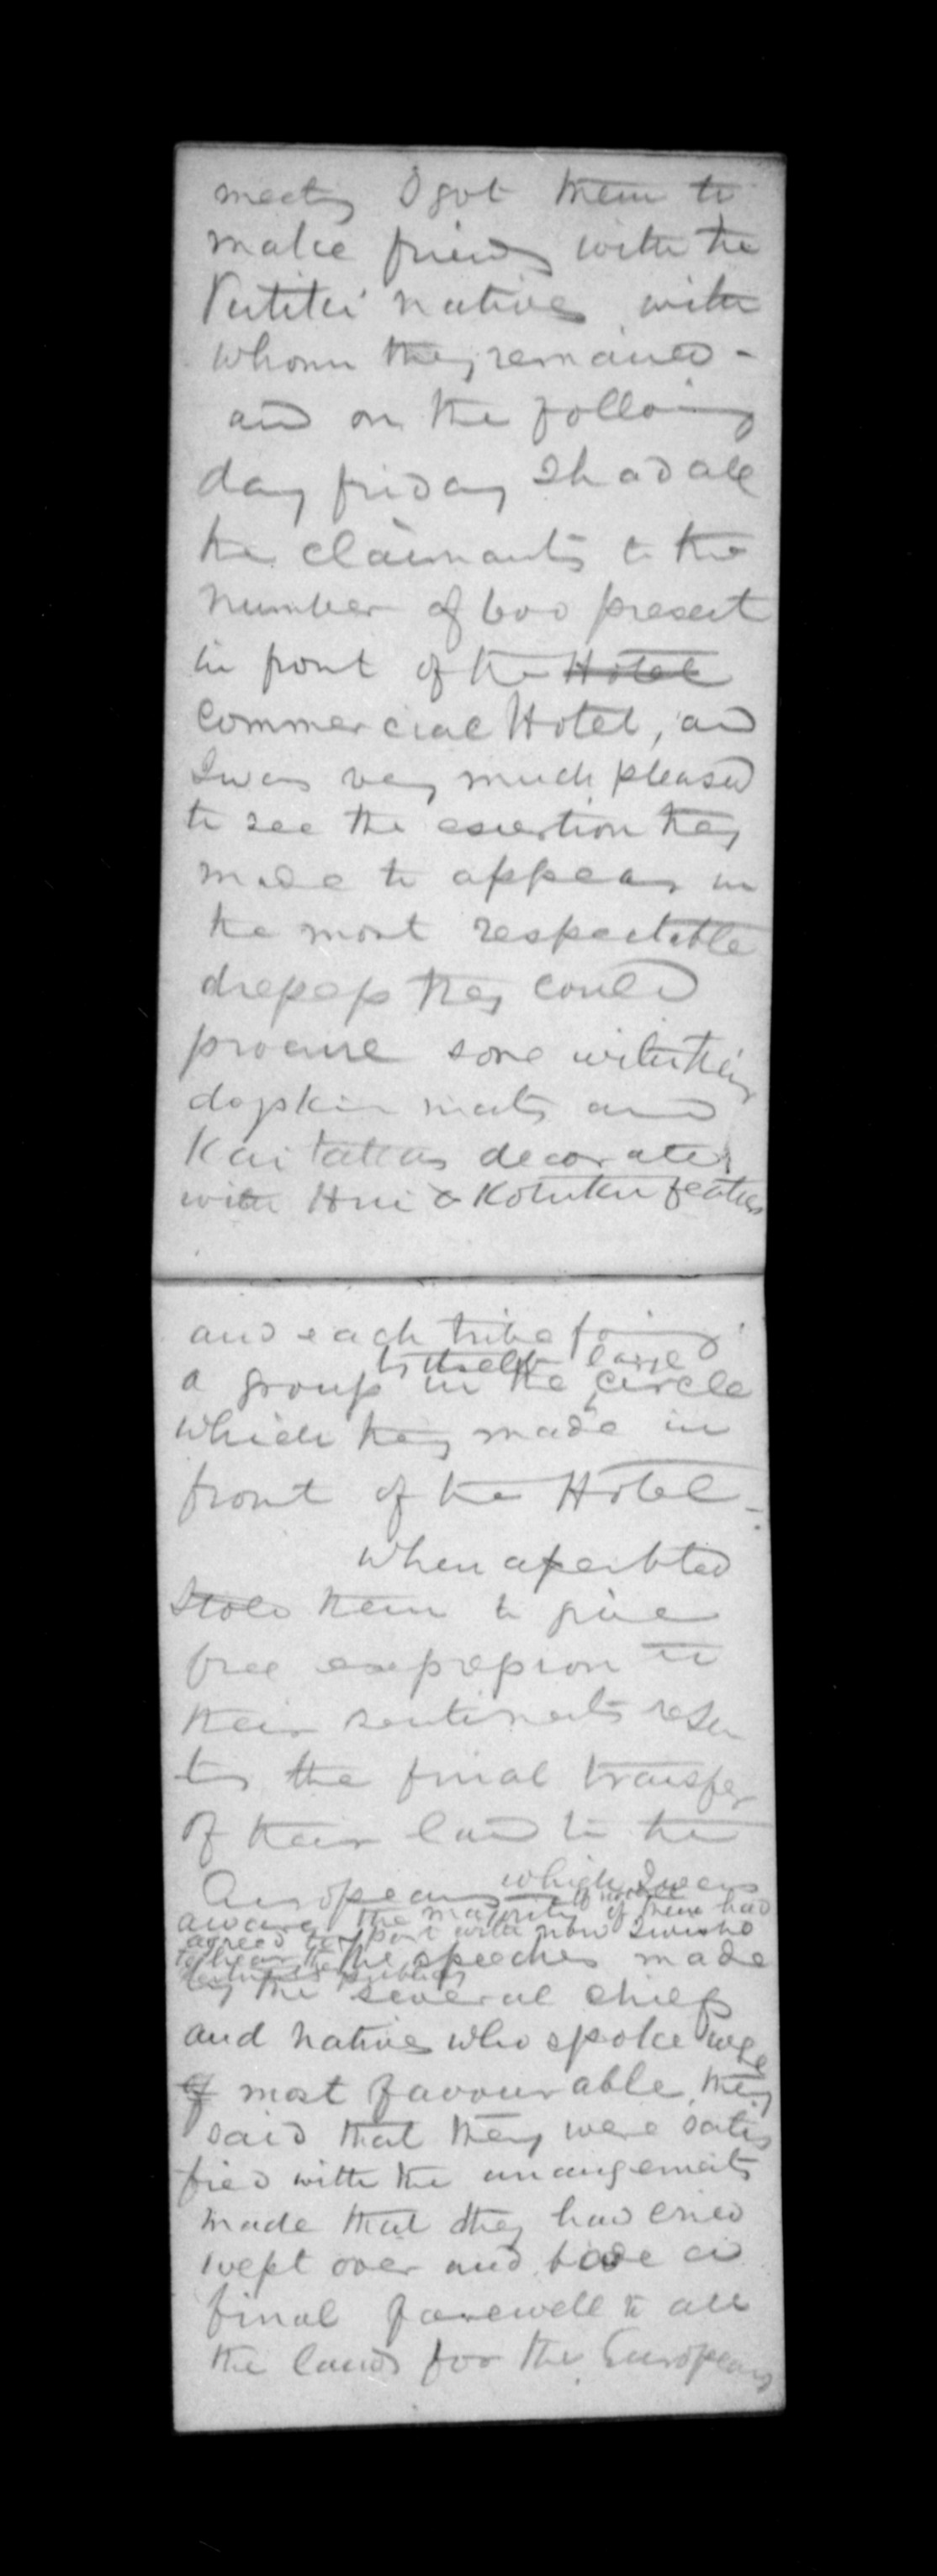 meeting I got them to
make friends with the
Putiki natives with
whom they remained -
and on the following
day friday I had all
the claimants to the
number of 600 present
in front of the Hotel
Commercial Hotel, and
I was very much pleased
to see the exertion they
made to appear in
the most respectable
dresses they could
procure some with their
dogskin mats and
Kaitakas decorated
with Hui & Kotuku feathers
and each tribe forming
by itself large
a group in the circle
which they made in
front of the Hotel -
When assembled
I told them to give
free expression to
their sentiments rela
to the final transfer
of their land to the
Europeans which I was
aware the majority of them had
agreed to part with now I wished
to hear the
the speeches made
by the several chiefs
and natives who spoke were
of most favourable, they
said that they were satis
fied with the arrangements
made that they had cried
wept over and bade a
final farewell to all
the lands for the Europeans